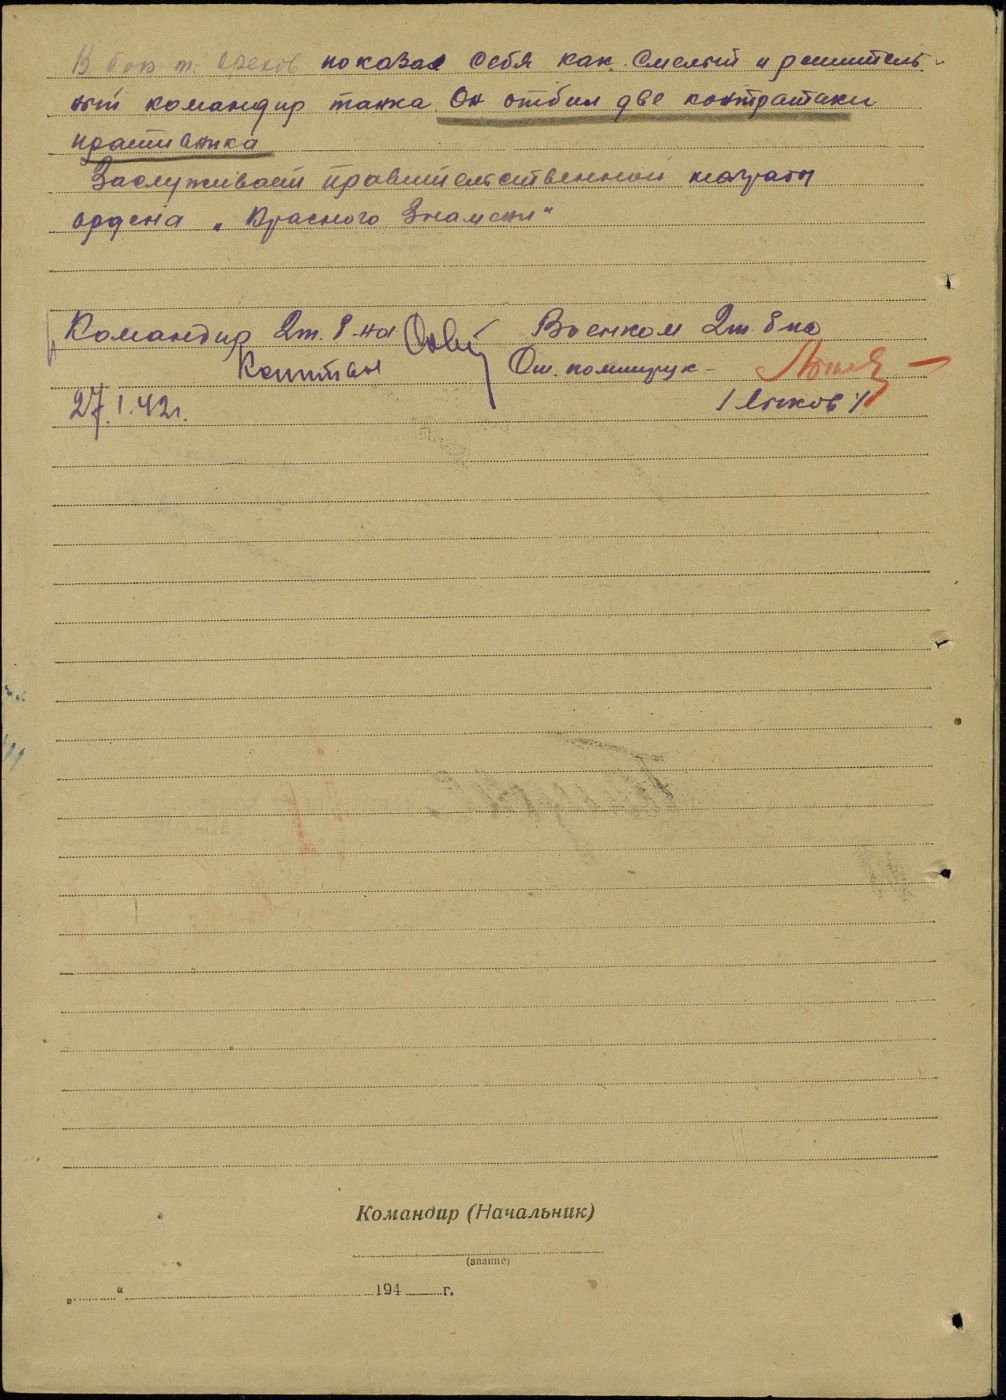 В бою т. Орехов показал себя как смелый и решитель-
ный командир танка. Он отбил две контратаки
противника
Заслуживает правительственной награды
ордена „Красного Знамени"
Командир 2 т. б-на Военком 2 т. б-на
Капитан Ст. политрук -
27.1.42 г. / Лыков /
Командир (Начальник)
(звание)
„ “ 194 г.